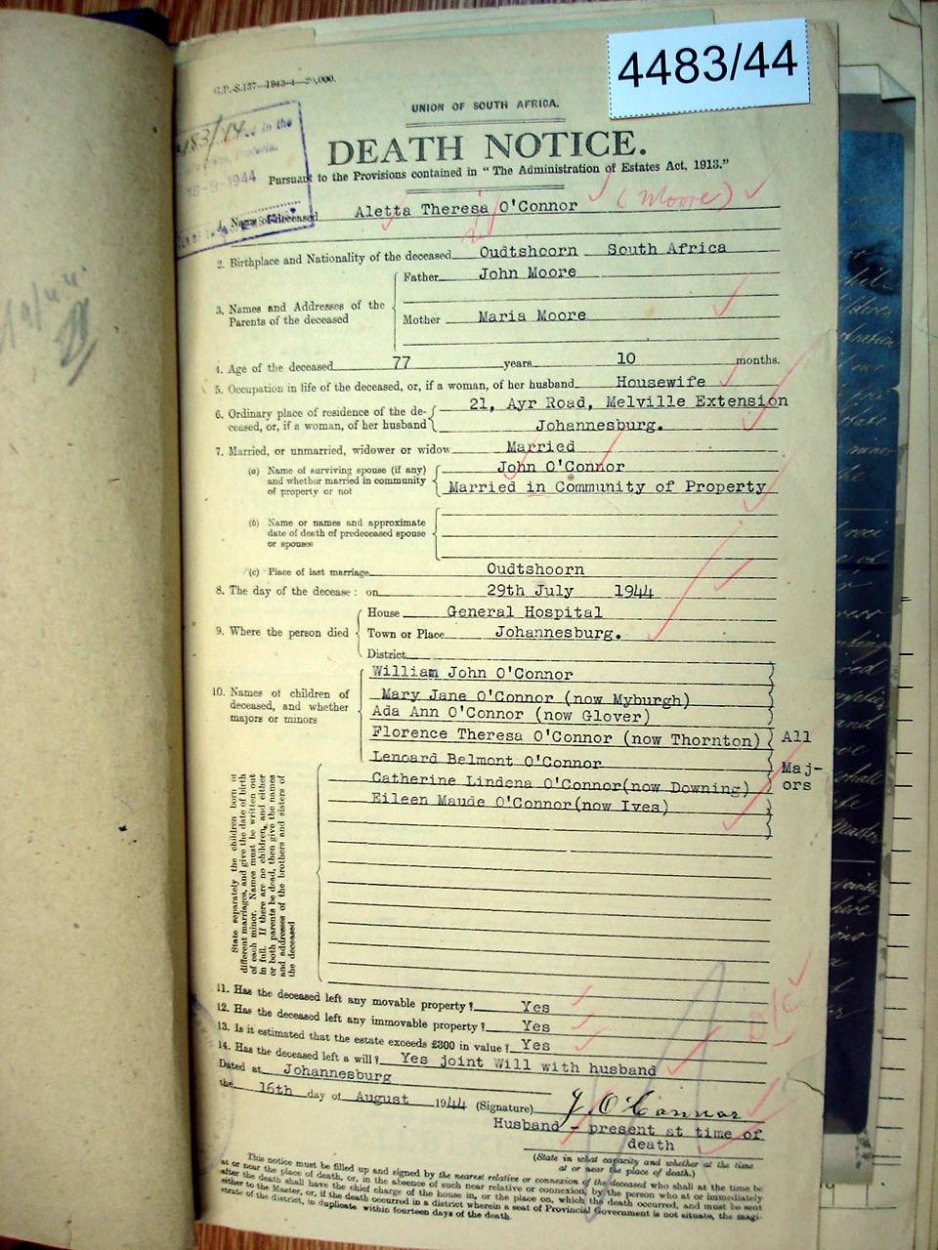 4483/44
G.P.-S.137—1943-4—20,000.
UNION OF SOUTH AFRICA.
DEATH NOTICE.
Pursuant to the Provisions contained in "The Administration of Estates Act, 1913."
1944
1. Name of deceased Aletta Theresa O'Connor (Moore)
2. Birthplace and Nationality of the deceased Oudtshoorn South Africa
3. Names and Addresses of the Parents of the deceased
Father John Moore
Mother Maria Moore
4. Age of the deceased 77 years 10 months.
5. Occupation in life of the deceased, or, if a woman, of her husband Housewife
6. Ordinary place of residence of the de- 21, Ayr Road, Melville Extension
ceased, or, if a woman, of her husband Johannesburg.
7. Married, or unmarried, widower or widow Married
(a) Name of surviving spouse (if any) John O'Connor
and whether married in community
of property or not Married in Community of Property
(b) Name or names and approximate
date of death of predeceased spouse
or spouses
(c) Place of last marriage Oudtshoorn
8. The day of the decease : on 29th July 1944
9. Where the person died
House General Hospital
Town or Place Johannesburg.
District
10. Names of children of
deceased, and whether
majors or minors
William John O'Connor
Mary Jane O'Connor (now Myburgh)
Ada Ann O'Connor (now Glover)
Florence Theresa O'Connor (now Thornton)
Lenoard Belmont O'Connor
Catherine Lindena O'Connor(now Downing)
Eileen Maude O'Connor(now Ives)
All
Maj-
ors
State separately the children born of
different marriages, and give the date of birth
of each minor. Names must be written out
in full. If there are no children, and either
or both parents be dead, then give the names
and addresses of the brothers and sisters of
the deceased
11. Has the deceased left any movable property? Yes
12. Has the deceased left any immovable property? Yes
13. Is it estimated that the estate exceeds £300 in value? Yes
14. Has the deceased left a will? Yes joint Will with husband
Dated at Johannesburg
the 16th day of August 1944 (Signature) J. O'Connor
Husband - present at time of
death
(State in what capacity and whether at the time
at or near the place of death.)
This notice must be filled up and signed by the nearest relative or connexion of the deceased who shall at the time be
at or near the place of death, or, in the absence of such near relative or connexion, by the person who at or immediately
after the death shall have the chief charge of the house in, or the place on, which the death occurred, and must be sent
either to the Master, or, if the death occurred in a district wherein a seat of Provincial Government is not situate, the magi-
strate of the district, in duplicate within fourteen days of the death.